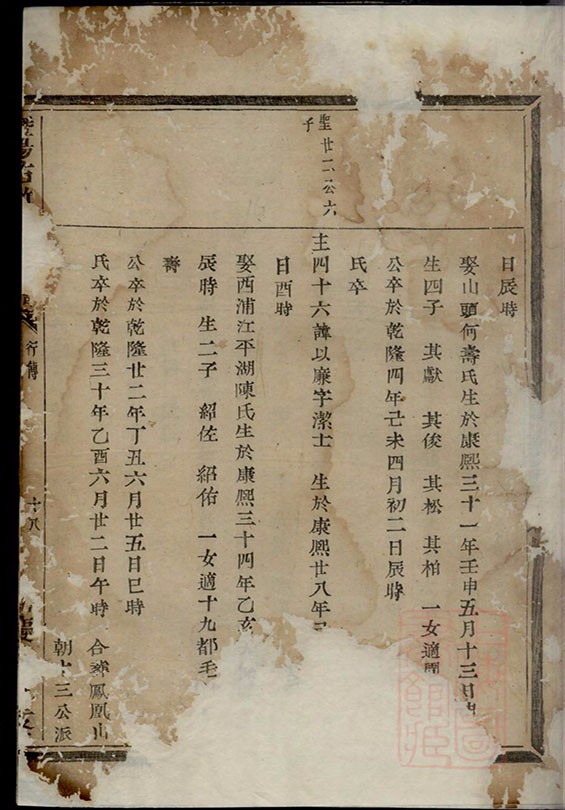 日辰時
娶山頭何壽氏生於康熙三十一年壬申五月十三日
生四子 其獻 其俊 其松 其柏 一女適
公卒於乾隆四年己未四月初二日辰時
氏卒
聖廿二公六
子
主四十六諱以廉字潔士 生於康熙廿八年己
日酉時
娶西浦江平湖陳氏生於康熙三十四年乙亥
辰時 生二子 紹佐 紹佑 一女適十九都毛
壽
公卒於乾隆廿二年丁丑六月廿五日巳時
氏卒於乾隆三十年乙酉六月廿二日午時 合葬鳳凰山
朝十三公派
暨陽
行傳
十八